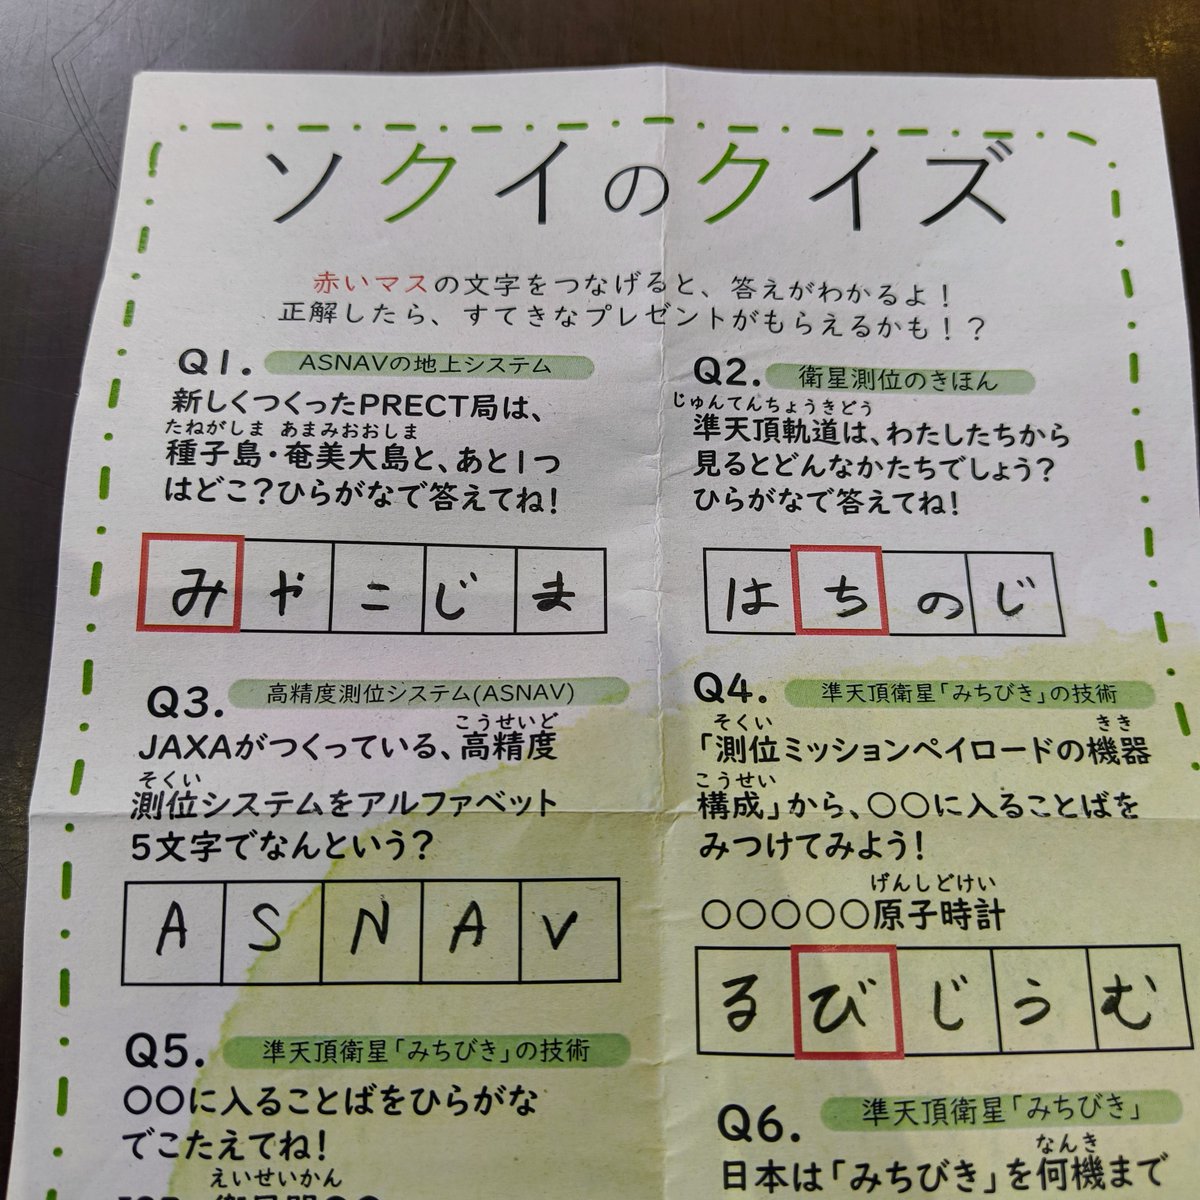 ソクイのクイズ
赤いマスの文字をつなげると、答えがわかるよ！
正解したら、すてきなプレゼントがもらえるかも！？
Q1. ASNAVの地上システム
新しくつくったPRECT局は、
たねがしま あまみおおしま
種子島・奄美大島と、あと1つ
はどこ？ひらがなで答えてね！
みやこじま
Q2. 衛星測位のきほん
じゅんてんちょうきどう
準天頂軌道は、わたしたちから
見るとどんなかたちでしょう？
ひらがなで答えてね！
はちのじ
Q3. 高精度測位システム(ASNAV)
こうせいど
JAXAがつくっている、高精度
そくい
測位システムをアルファベット
5文字でなんという？
ASNAV
Q4. 準天頂衛星「みちびき」の技術
そくい きき
「測位ミッションペイロードの機器
こうせい
構成」から、○○に入ることばを
みつけてみよう！
げんしどけい
○○○○○原子時計
るびじうむ
Q5. 準天頂衛星「みちびき」の技術
○○に入ることばをひらがな
でこたえてね！
えいせいかん
Q6. 準天頂衛星「みちびき」
なんき
日本は「みちびき」を何機まで